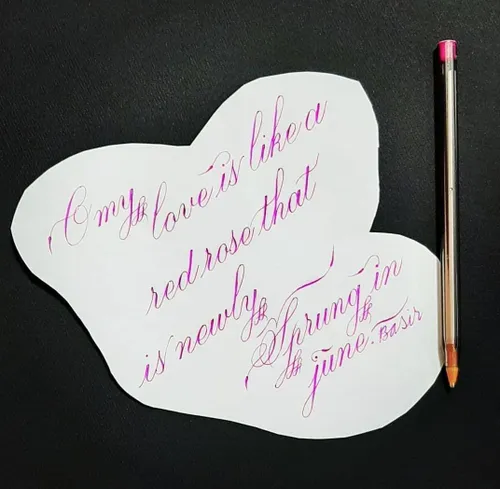 O my love is like a
red rose that
is newly
Sprung in
june. Basir